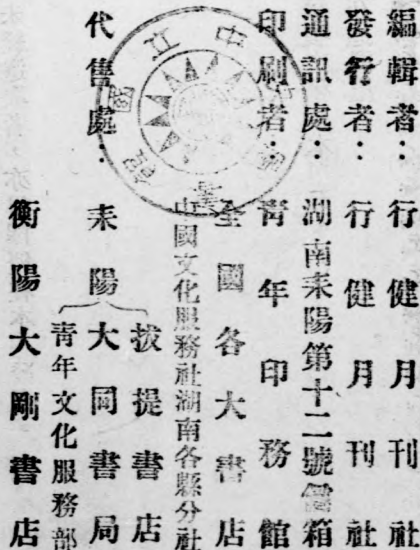 編輯者：行健月刊社
發行者：行健月刊社
通訊處：湖南耒陽第十二號信箱
印刷者：青年印務館
代售處：
全國各大書店
中國文化服務社湖南各縣分社
耒陽
拔提書店
大同書局
青年文化服務部
衡陽大剛書店